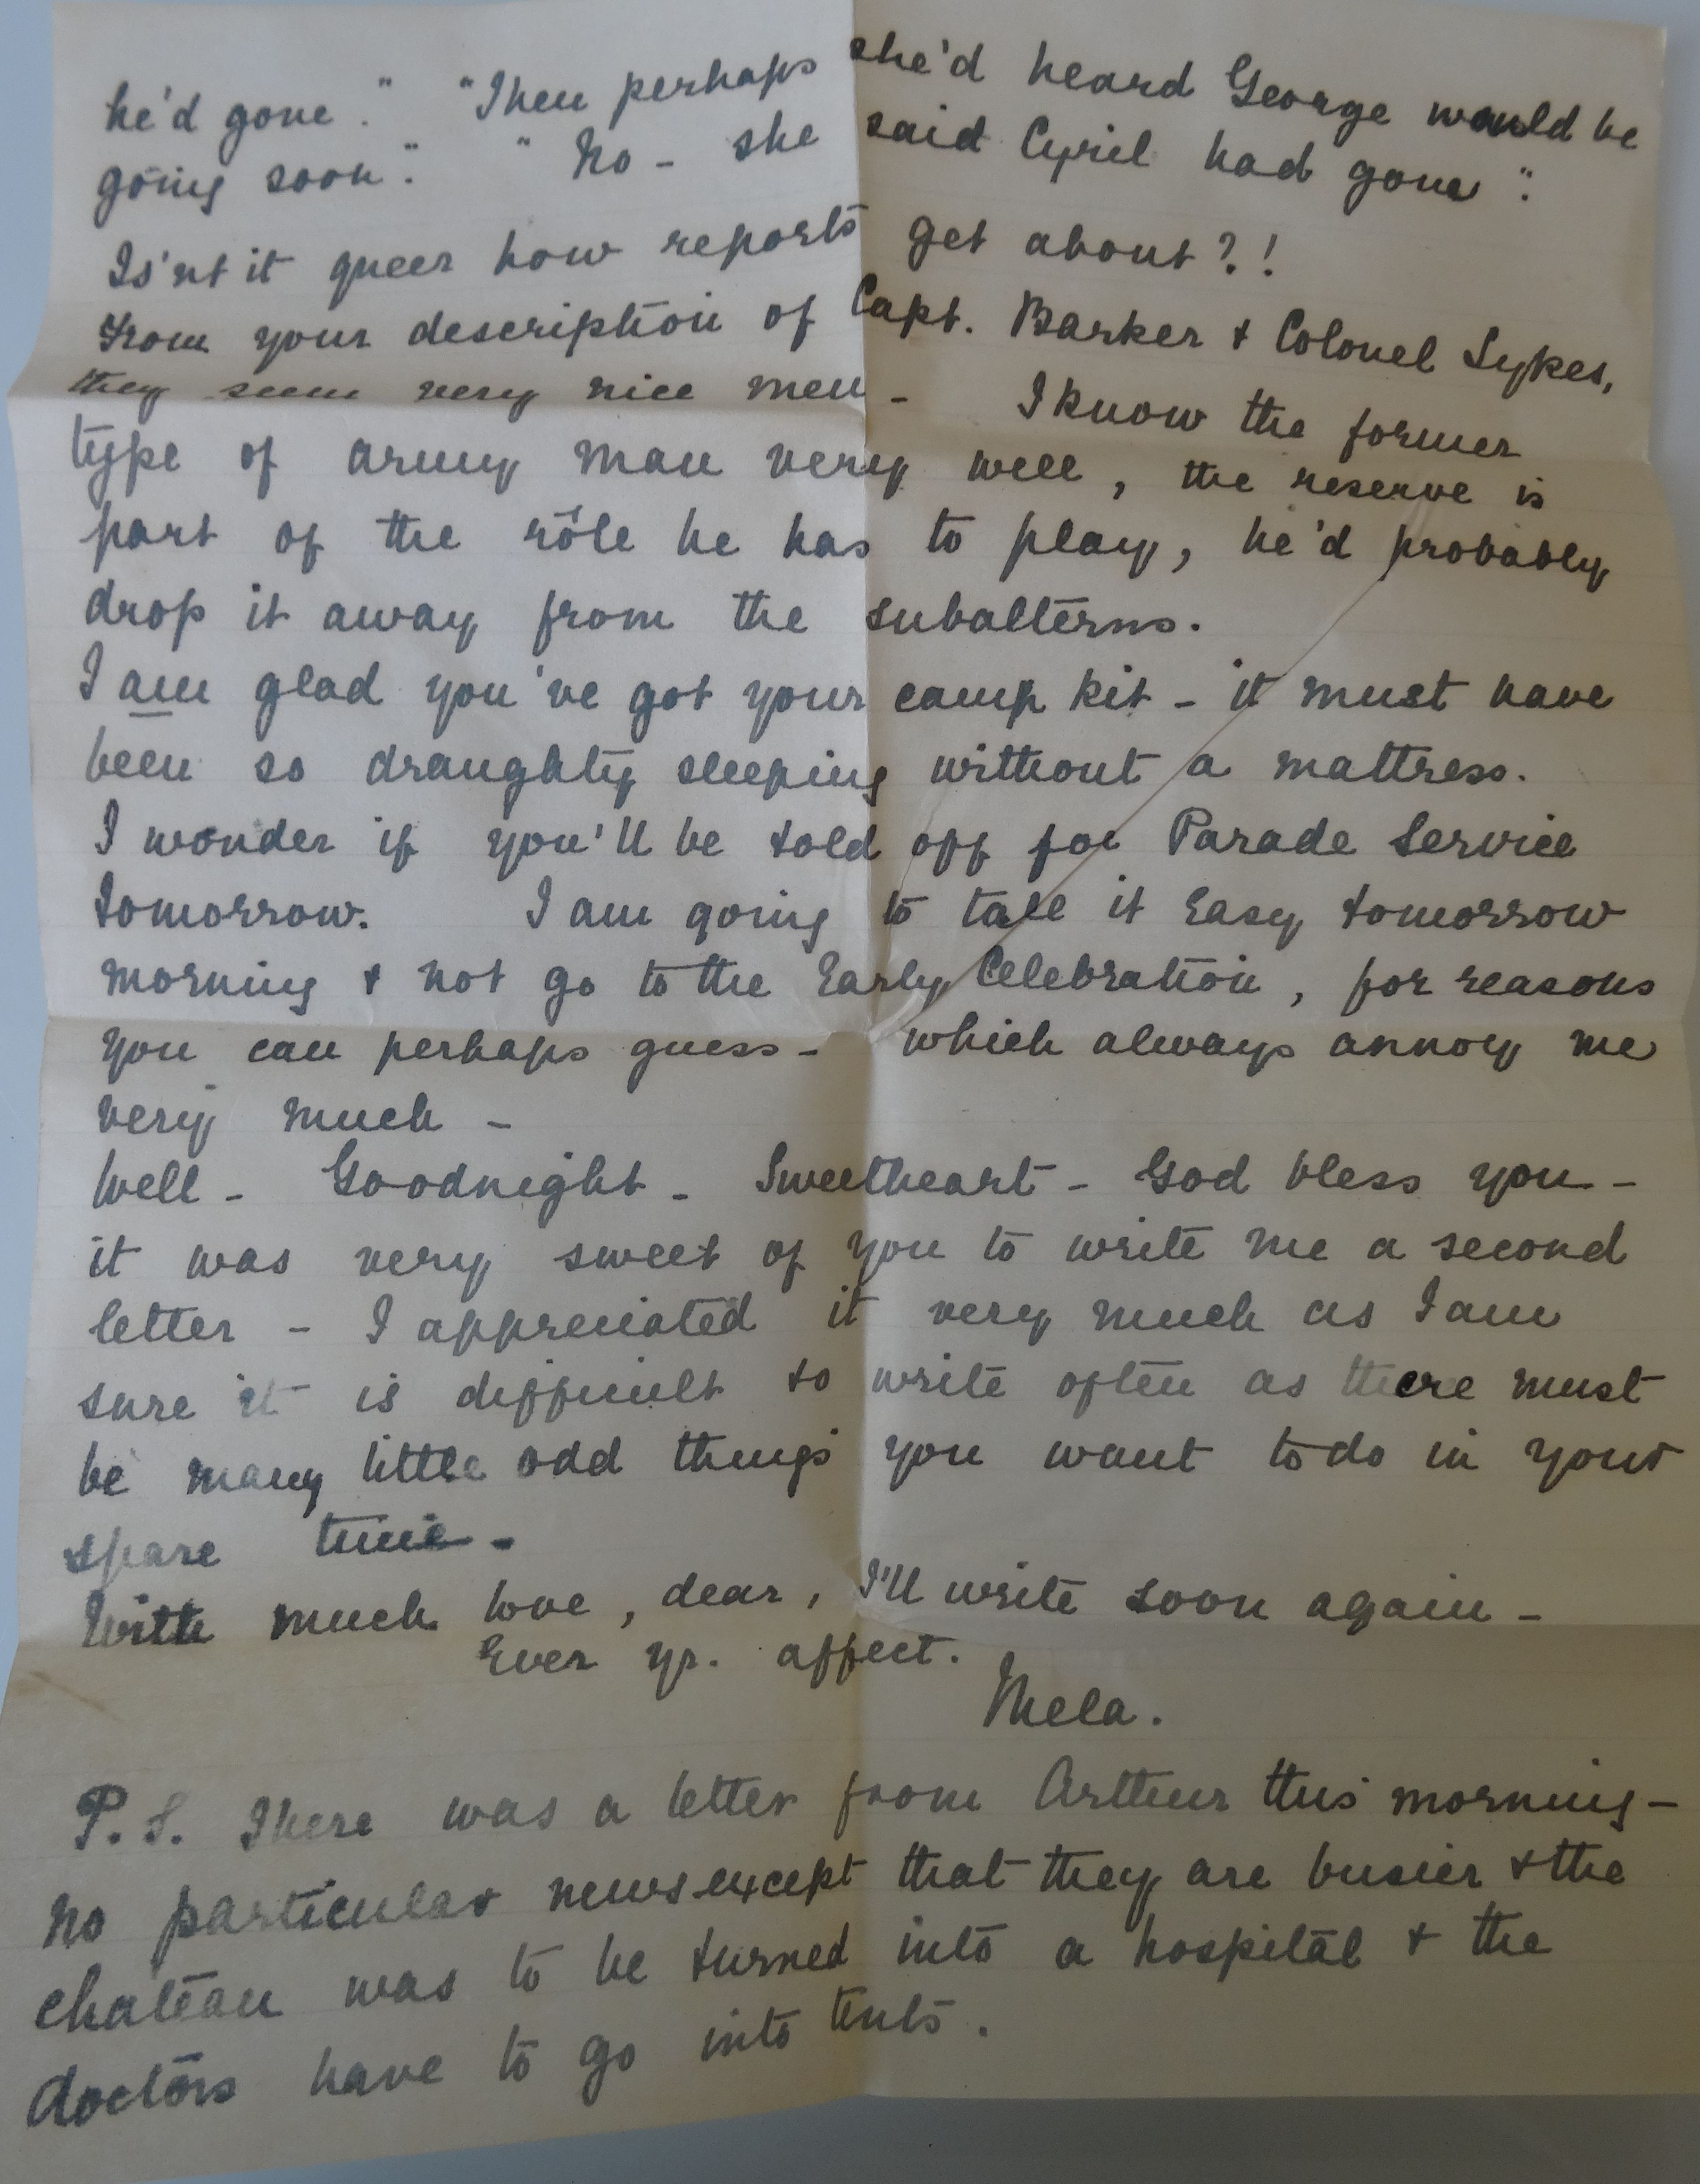 he'd gone." "Then perhaps she'd heard George would be
going soon". "No - she said Cyril had gone".
Is'nt it queer how reports get about?!
From your description of Capt. Barker & Colonel Sykes,
they seem very nice men - I know the former
type of army man very well, the reserve is
part of the rôle he has to play, he'd probably
drop it away from the subalterns.
I am glad you've got your camp kit - it must have
been so draughty sleeping without a mattress.
I wonder if you'll be told off for Parade Service
tomorrow. I am going to take it Easy tomorrow
morning & not go to the Early Celebration, for reasons
you can perhaps guess - which always annoy me
very much -
Well - Goodnight - Sweetheart - God bless you -
it was very sweet of you to write me a second
letter - I appreciated it very much as I am
sure it is difficult to write often as there must
be many little odd things you want to do in your
spare time -
With much love, dear, I'll write soon again -
Ever yr. affect.
Mela.
P.S. There was a letter from Arthur this morning -
no particular news except that they are busier & the
chateau was to be turned into a hospital & the
doctors have to go into tents.